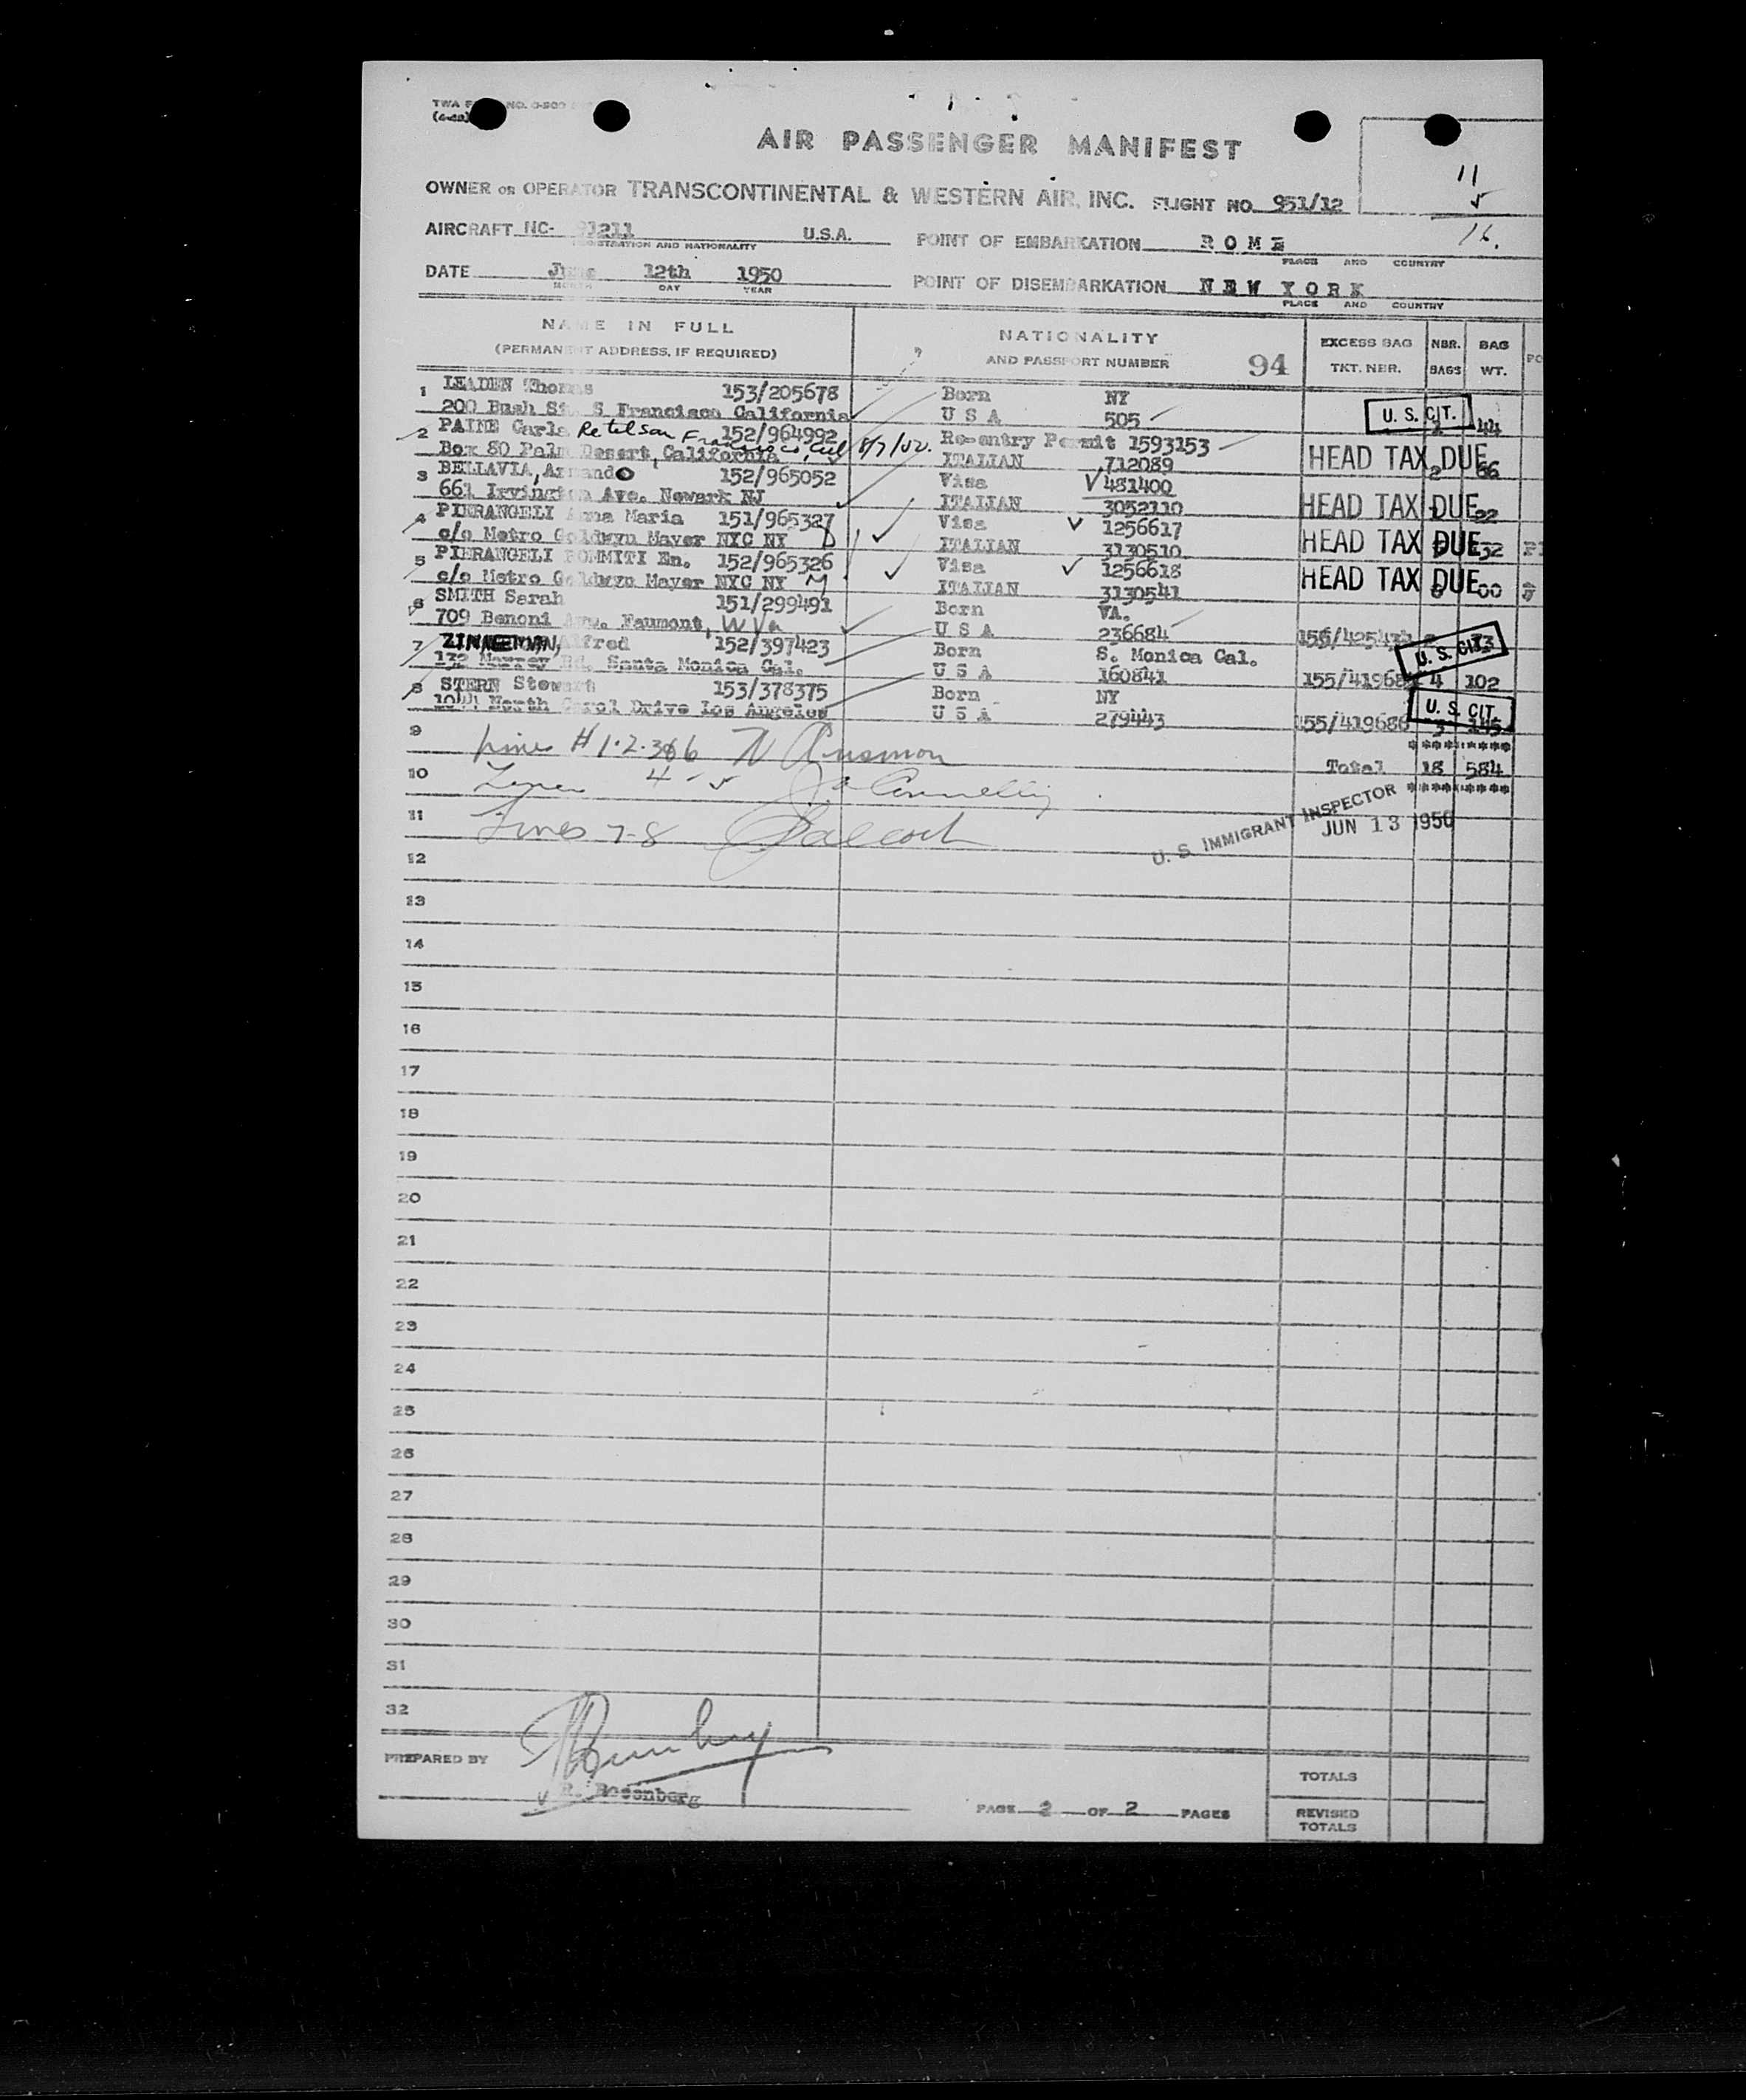 TWA F NO. O-800
AIR PASSENGER MANIFEST
OWNER OR OPERATOR TRANSCONTINENTAL & WESTERN AIR, INC. FLIGHT NO. 951/12
11
5
16.
AIRCRAFT NC- 91211 U.S.A. POINT OF EMBARKATION ROME
REGISTRATION AND NATIONALITY PLACE AND COUNTRY
DATE June 12th 1950 POINT OF DISEMBARKATION NEW YORK
MONTH DAY YEAR PLACE AND COUNTRY
NAME IN FULL NATIONALITY EXCESS BAG NBR. BAG
(PERMANENT ADDRESS, IF REQUIRED) AND PASSPORT NUMBER 94 TKT. NBR. BAGS WT.
1 LEADEN Thomas 153/205678 Born NY
200 Bush St. S Francisco California U S A 505 U. S. CIT. 44
2 PAINE Carla 152/964992 Re-entry Permit 1593153
Box 80 Palm Desert, California ITALIAN 712089 HEAD TAX DUE 2 66
3 BELLAVIA, Armando 152/965052 Visa 481400
661 Irvington Ave. Newark NJ ITALIAN 3052110 HEAD TAX DUE 22
4 PIERANGELI Anna Maria 151/965327 Visa 1256617
c/o Metro Goldwyn Mayer NYC NY ITALIAN 3130510 HEAD TAX DUE
5 PIERANGELI POMMITI En. 152/965326 Visa 1256618
c/o Metro Goldwyn Mayer NYC NY M ITALIAN 3130541 HEAD TAX DUE
6 SMITH Sarah 151/299491 Born VA.
709 Benoni Ave. Faumont, W Va U S A 236684
7 Alfred 152/397423 Born S. Monica Cal. U. S. CIT 73
Rd. Santa Monica Cal. U S A 160841 4 102
8 STERN Stewart 153/378375 Born NY
1044 North Carol Drive Los Angeles U S A 279443 155/419686 U. S. CIT. 3 145
9 Lines # 1.2.3&6
Total 18 584
10 4 - 5 Connelly
11 Lines 7-8
U. S. IMMIGRANT INSPECTOR
JUN 13 1950
12
13
14
15
16
17
18
19
20
21
22
23
24
25
26
27
28
29
30
31
32
PREPARED BY
R. Rosenberg
PAGE 2 OF 2 PAGES
TOTALS
REVISED
TOTALS